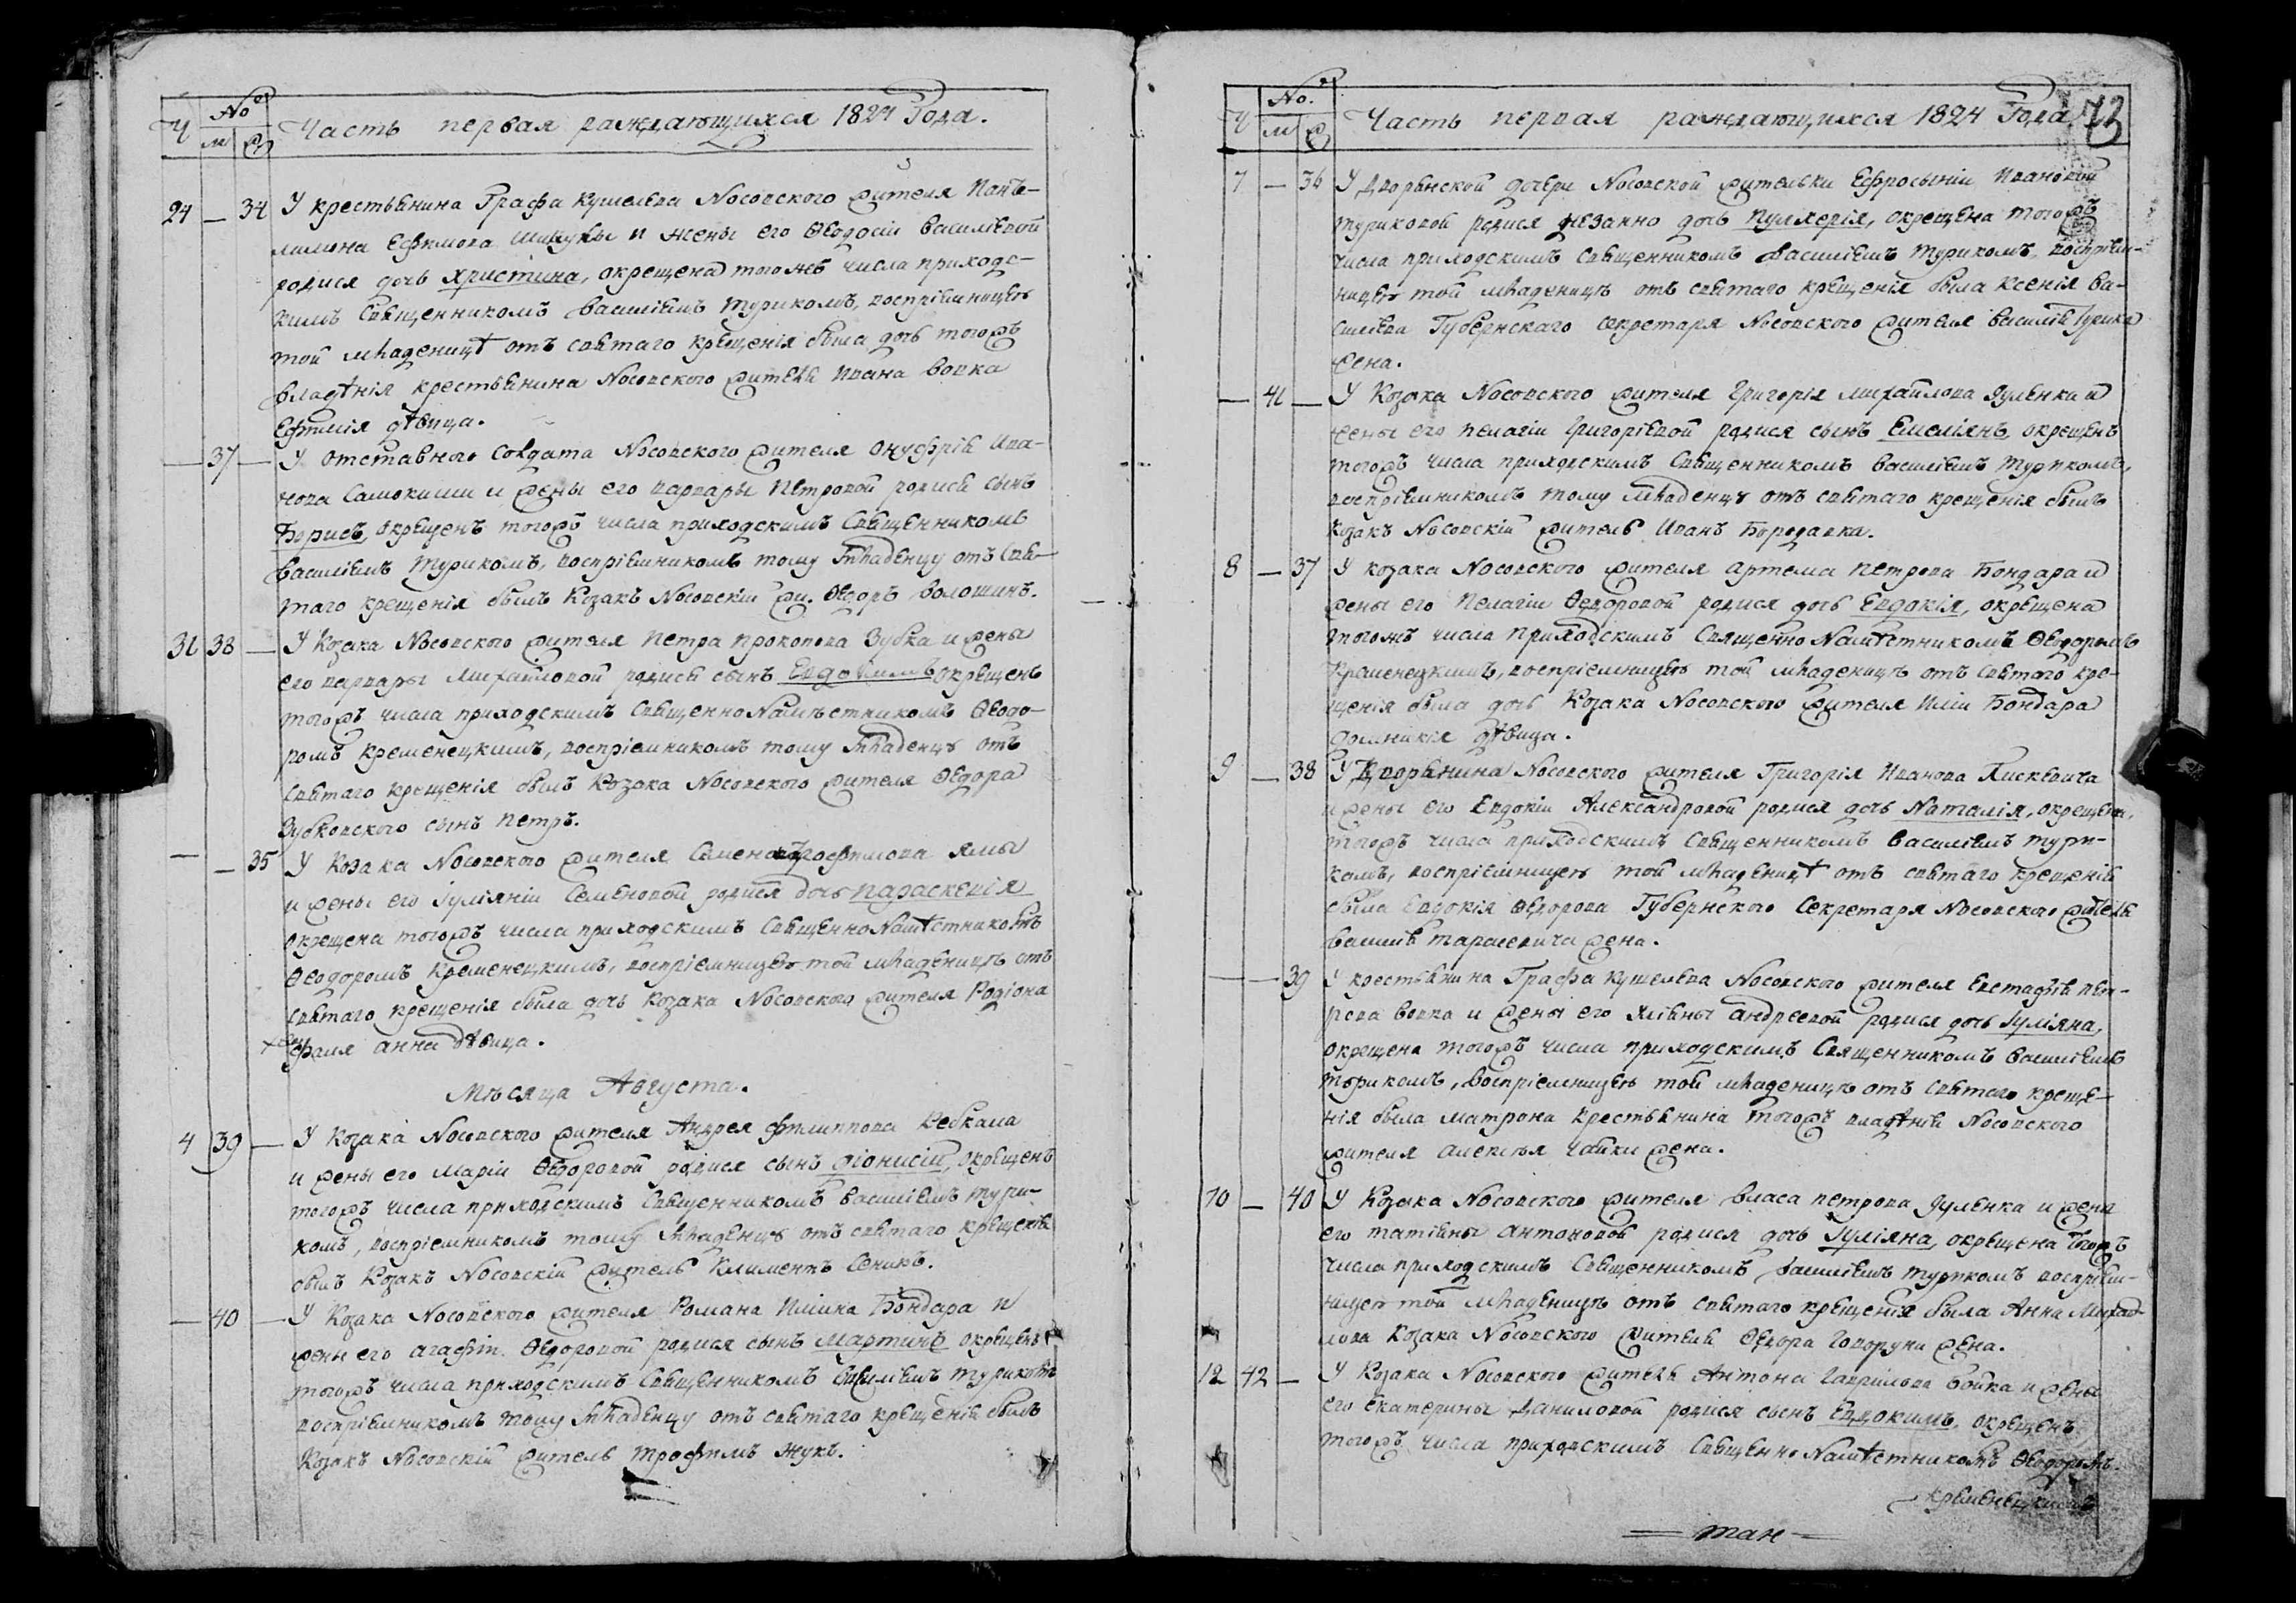 Ч No м ж Часть первая раждающихся 1824 Года.
24 — 34 У крестьянина Графа Кушелева Носовского жителя Панте-
лимона Ефимова и жены его Ѳеодосіи Василіевой
родися дочь Христина, окрещена тогожъ числа приходс-
кимъ Священникомъ Василіемъ Турикомъ, воспріемницею
той младеницѣ отъ святаго крещенія была дочь тогожъ
владѣнія крестьянина Носовского жителя Ивана Вовка
Ефимія дѣвица.
— 37 — У отставного Солдата Носовского жителя Онуфрія Ива-
нова Самокиши и жены его Варвары Петровой родися сынъ
Борисъ, окрещенъ тогожъ числа приходскимъ Священникомъ
Василіемъ Турикомъ, воспріемникомъ тому младенцу отъ Свя-
таго крещенія былъ Козакъ Носовскій жи. Ѳеодоръ Волошинъ.
31 38 — У Козака Носовского жителя Петра Прокопова Зубка и жены
его Варвары Михайловой родися сынъ Евдокимъ окрещенъ
тогожъ числа приходскимъ Священно Намѣстникомъ Ѳеодо-
ромъ Кременецкимъ, воспріемникомъ тому младенцу отъ
Святаго крещенія былъ Козака Носовского жителя Ѳедора
Зубковского сынъ Петръ.
— — 35 У Козака Носовского жителя Семена Трофимова Ямы
и жены его Іуліяніи Семеновой родися дочь Параскевія
окрещена тогожъ числа приходскимъ Священно Намѣстникомъ
Ѳеодоромъ Кременецкимъ, воспріемницею той младеницѣ отъ
Святаго крещенія была дочь Козака Носовского жителя Родіона
Анна дѣвица.
Мѣсяца Августа.
4 39 — У Козака Носовского жителя Андрея Филиппова
и жены его Маріи Ѳедоровой родися сынъ Діонисій, окрещенъ
тогожъ числа приходскимъ Священникомъ Василіемъ Тури-
комъ, воспріемникомъ тому младенцу отъ святаго крещенія
былъ Козакъ Носовскій житель Климентъ Сеникъ.
— 40 — У Козака Носовского жителя Романа Иліина Бондара и
жены его Агафіи Ѳедоровой родися сынъ Мартинъ окрещенъ
тогожъ числа приходскимъ Священникомъ Василіемъ Туриком
воспріемникомъ тому младенцу отъ святаго крещенія былъ
Козакъ Носовскій житель Трофимъ Жукъ.
Ч No. м ж Часть первая раждающихся 1824 Года 73
7 — 36 У Дворянской дочери Носовской жительки Ефросыніи Ивановой
Туриковой родися незакно дочь Пулхерія, окрещена тогожъ
числа приходскимъ Священникомъ Василіемъ Туриком, воспріем-
ницею той младеницѣ отъ святаго крещенія была Ксенія Ва-
силіева Губернскаго Секретаря Носовского жителя Василія Турика
жена.
— 41 — У Козака Носовского жителя Григорія Михайлова Гуленка и
жены его Пелагіи Григоріевой родися сынъ Емеліянъ окрещенъ
тогожъ числа приходскимъ Священникомъ Василіемъ Туриком,
воспріемникомъ тому младенцу отъ святаго крещенія былъ
Козакъ Носовскій житель Иванъ Бородавка.
8 — 37 У козака Носовского жителя Артема Петрова Бондара и
жены его Пелагіи Ѳедоровой родися дочь Евдокія, окрещена
тогожъ числа приходскимъ Священно Намѣстникомъ Ѳеодоромъ
Кременецкимъ, воспріемницею той младеницѣ отъ Святаго кре-
щенія была дочь Козака Носовского жителя Иліи Бондара
Домникія дѣвица.
9 — 38 У Дворянина Носовского жителя Григорія Иванова Яскевича
и жены его Евдокіи Александровой родися дочь Наталія, окрещена,
тогожъ числа приходскимъ Священникомъ Василіемъ Тури-
комъ, воспріемницею той младеницѣ отъ святаго крещенія
была Евдокія Ѳедорова Губернского Секретаря Носовского жителя
Василія Тарасевича жена.
— — 39 У крестьянина Графа Кушелева Носовского жителя Евстафія Пет-
рова Вовка и жены его Уліяны Андреевой родися дочь Іуліяна,
окрещена тогожъ числа приходскимъ Священникомъ Василіемъ
Туриком, воспріемницею той младеницѣ отъ Святаго креще-
нія была Матрона крестьянина тогожъ владѣнія Носовского
жителя Алексѣя Чайки жена.
10 — 40 У Козака Носовского жителя Власа Петрова Гуленка и жены
его Татіяны Антоновой родися дочь Іуліяна, окрещена тогожъ
числа приходскимъ Священникомъ Василіемъ Туриком воспріем-
ницею той младеницѣ отъ святаго крещенія была Анна Михай-
лова Козака Носовского жителя Ѳедора Говоруна жена.
12 42 — У Козака Носовского жителя Антона Гаврилова Бойка и жены
его Екатерины Даниловой родися сынъ Евдокимъ, окрещенъ
тогожъ числа приходскимъ Священно Намѣстникомъ Ѳеодоромъ
Кременецкимъ